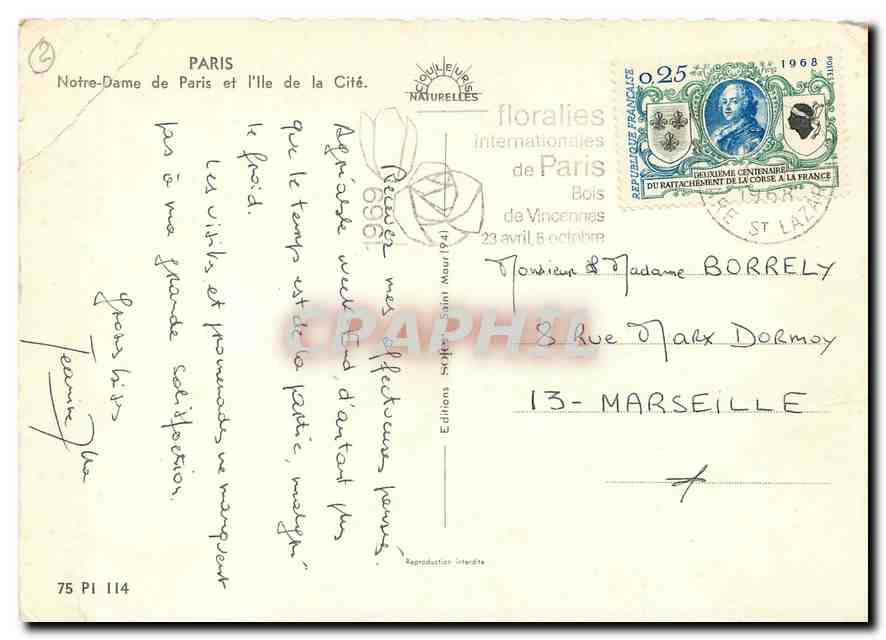 2
PARIS
Notre-Dame de Paris et l'Ile de la Cité.
COULEURS
NATURELLES
floralies
internationales
de Paris
Bois
de Vincennes
23 avril, 5 octobre
1969
0,25 1968
POSTES
REPUBLIQUE FRANÇAISE
DEUXIEME CENTENAIRE
DU RATTACHEMENT DE LA CORSE A LA FRANCE
1968
ST LAZAR
Recevez mes affectueuses pensées.
Agréable week-end, d'autant plus
que le temps est de la partie, malgré
le froid.
Les visites et promenades ne manquent
pas à ma grande satisfaction.
Gros bises
Jeanine
Monsieur & Madame BORRELY
8 Rue Marx Dormoy
13- MARSEILLE
Editions "sofer" Saint Maur (94)
CPAPHIL
Reproduction interdite
75 PI 114